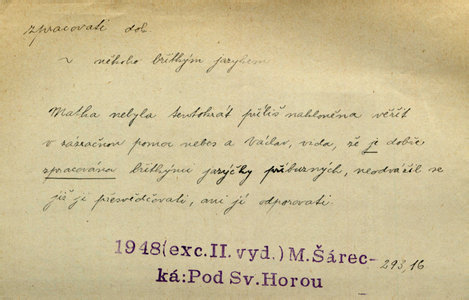 zpracovati dok.
někoho břitkým jazykem
Matka nebyla tentokrát příliš nakloněna věřit
v zázračnou pomoc nebes a Václav, vida, že je dobře
zpracována břitkými jazýčky příbuzných, neodvážil se
již ji přesvědčovati, ani jí odporovati.
1948(exc.II.vyd.)M.Šárec-
ká:Pod Sv.Horou
293,16